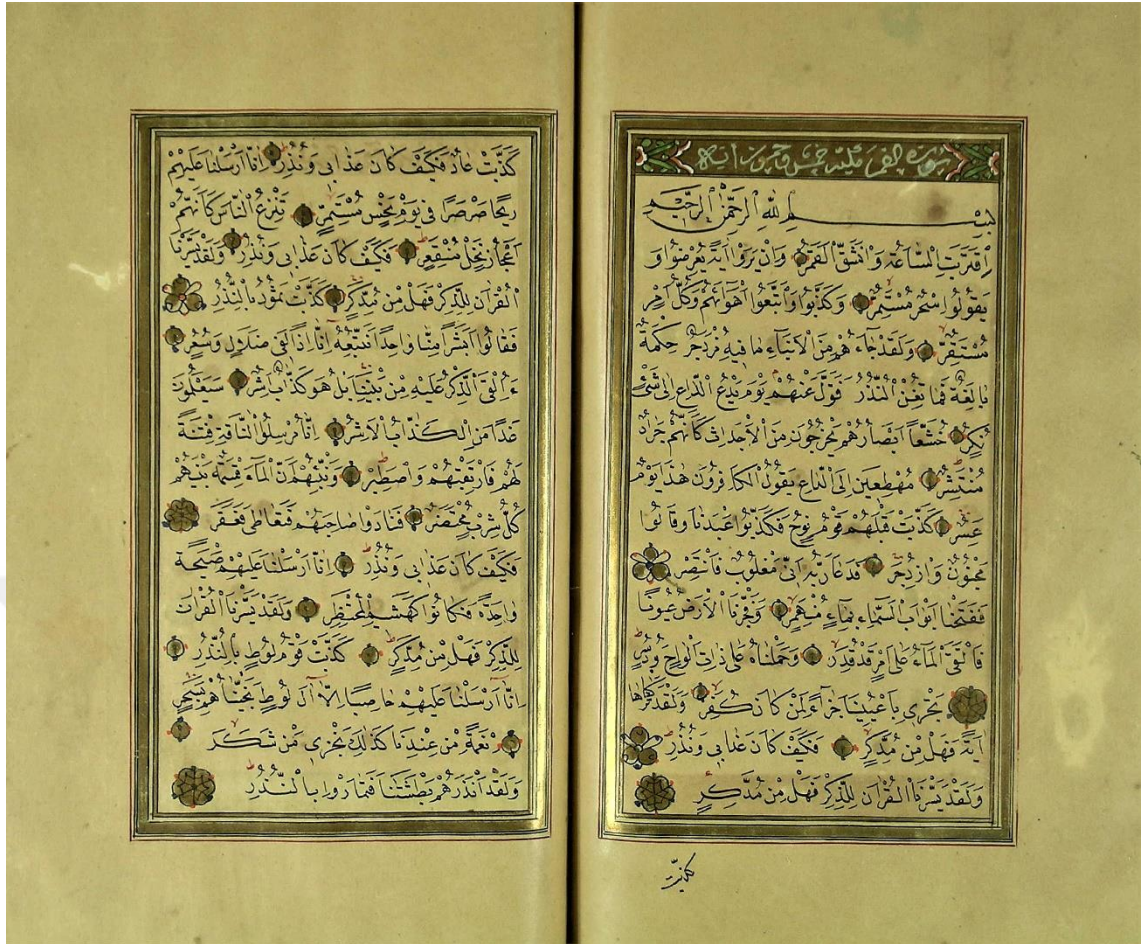 سورة القمر مكية خمس وخمسون آية
بسم الله الرحمن الرحيم
اِقْتَرَبَتِ السَّاعَةُ وَانْشَقَّ الْقَمَرُ وَاِنْ يَرَوْا اٰيَةً يُعْرِضُوا وَ
يَقُولُوا سِحْرٌ مُسْتَمِرٌّ وَكَذَّبُوا وَاتَّبَعُوا اَهْوَاءَهُمْ وَكُلُّ اَمْرٍ
مُسْتَقِرٌّ وَلَقَدْ جَاءَهُمْ مِنَ الْاَنْبَاءِ مَا فِيهِ مُزْدَجَرٌ حِكْمَةٌ
بَالِغَةٌ فَمَا تُغْنِ النُّذُرُ فَتَوَلَّ عَنْهُمْ يَوْمَ يَدْعُ الدَّاعِ اِلٰى شَيْءٍ
نُكُرٍ خُشَّعًا اَبْصَارُهُمْ يَخْرُجُونَ مِنَ الْاَجْدَاثِ كَاَنَّهُمْ جَرَادٌ
مُنْتَشِرٌ مُهْطِعِينَ اِلَى الدَّاعِ يَقُولُ الْكَافِرُونَ هٰذَا يَوْمٌ
عَسِرٌ كَذَّبَتْ قَبْلَهُمْ قَوْمُ نُوحٍ فَكَذَّبُوا عَبْدَنَا وَقَالُوا
مَجْنُونٌ وَازْدُجِرَ فَدَعَا رَبَّهُ اَنِّي مَغْلُوبٌ فَانْتَصِرْ
فَفَتَحْنَا اَبْوَابَ السَّمَاءِ بِمَاءٍ مُنْهَمِرٍ وَفَجَّرْنَا الْاَرْضَ عُيُونًا
فَالْتَقَى الْمَاءُ عَلٰى اَمْرٍ قَدْ قُدِرَ وَحَمَلْنَاهُ عَلٰى ذَاتِ اَلْوَاحٍ وَدُسُرٍ
تَجْرِي بِاَعْيُنِنَا جَزَاءً لِمَنْ كَانَ كُفِرَ وَلَقَدْ تَرَكْنَاهَا
اٰيَةً فَهَلْ مِنْ مُدَّكِرٍ فَكَيْفَ كَانَ عَذَابِي وَنُذُرِ
وَلَقَدْ يَسَّرْنَا الْقُرْاٰنَ لِلذِّكْرِ فَهَلْ مِنْ مُدَّكِرٍ
كذبت
كَذَّبَتْ عَادٌ فَكَيْفَ كَانَ عَذَابِي وَنُذُرِ اِنَّا اَرْسَلْنَا عَلَيْهِمْ
رِيحًا صَرْصَرًا فِي يَوْمِ نَحْسٍ مُسْتَمِرٍّ تَنْزِعُ النَّاسَ كَاَنَّهُمْ
اَعْجَازُ نَخْلٍ مُنْقَعِرٍ فَكَيْفَ كَانَ عَذَابِي وَنُذُرِ وَلَقَدْ يَسَّرْنَا
الْقُرْاٰنَ لِلذِّكْرِ فَهَلْ مِنْ مُدَّكِرٍ كَذَّبَتْ ثَمُودُ بِالنُّذُرِ
فَقَالُوا اَبَشَرًا مِنَّا وَاحِدًا نَتَّبِعُهُ اِنَّا اِذًا لَفِي ضَلَالٍ وَسُعُرٍ
ءَاُلْقِيَ الذِّكْرُ عَلَيْهِ مِنْ بَيْنِنَا بَلْ هُوَ كَذَّابٌ اَشِرٌ سَيَعْلَمُونَ
غَدًا مَنِ الْكَذَّابُ الْاَشِرُ اِنَّا مُرْسِلُوا النَّاقَةِ فِتْنَةً
لَهُمْ فَارْتَقِبْهُمْ وَاصْطَبِرْ وَنَبِّئْهُمْ اَنَّ الْمَاءَ قِسْمَةٌ بَيْنَهُمْ
كُلُّ شِرْبٍ مُحْتَضَرٌ فَنَادَوْا صَاحِبَهُمْ فَتَعَاطٰى فَعَقَرَ
فَكَيْفَ كَانَ عَذَابِي وَنُذُرِ اِنَّا اَرْسَلْنَا عَلَيْهِمْ صَيْحَةً
وَاحِدَةً فَكَانُوا كَهَشِيمِ الْمُحْتَظِرِ وَلَقَدْ يَسَّرْنَا الْقُرْاٰنَ
لِلذِّكْرِ فَهَلْ مِنْ مُدَّكِرٍ كَذَّبَتْ قَوْمُ لُوطٍ بِالنُّذُرِ
اِنَّا اَرْسَلْنَا عَلَيْهِمْ حَاصِبًا اِلَّا اٰلَ لُوطٍ نَجَّيْنَاهُمْ بِسَحَرٍ
نِعْمَةً مِنْ عِنْدِنَا كَذٰلِكَ نَجْزِي مَنْ شَكَرَ
وَلَقَدْ اَنْذَرَهُمْ بَطْشَتَنَا فَتَمَارَوْا بِالنُّذُرِ